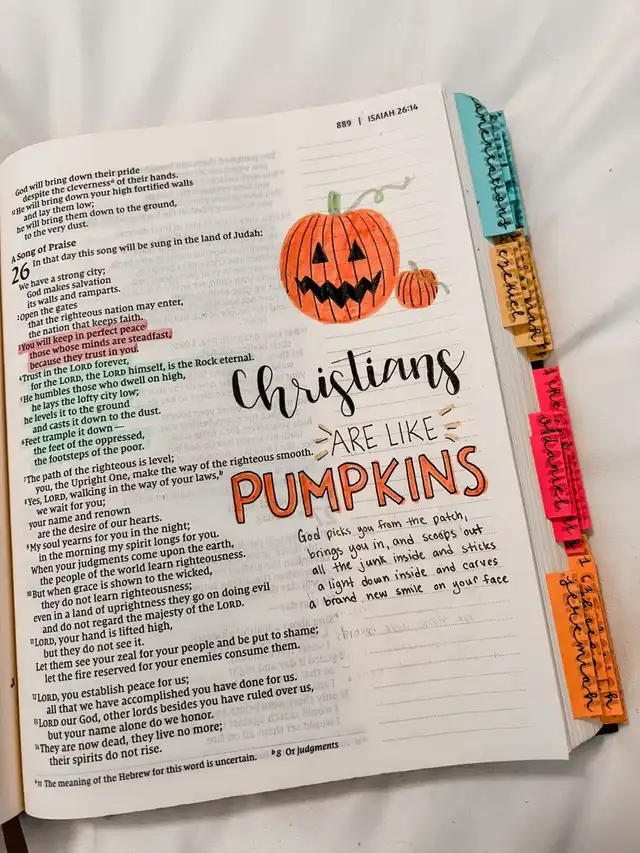 889 | ISAIAH 26:14
God will bring down their pride
despite the clevernessᵃ of their hands.
¹²He will bring down your high fortified walls
and lay them low;
he will bring them down to the ground,
to the very dust.
A Song of Praise
26 In that day this song will be sung in the land of Judah:
We have a strong city;
God makes salvation
its walls and ramparts.
²Open the gates
that the righteous nation may enter,
the nation that keeps faith.
³You will keep in perfect peace
those whose minds are steadfast,
because they trust in you.
⁴Trust in the LORD forever,
for the LORD, the LORD himself, is the Rock eternal.
⁵He humbles those who dwell on high,
he lays the lofty city low;
he levels it to the ground
and casts it down to the dust.
⁶Feet trample it down —
the feet of the oppressed,
the footsteps of the poor.
⁷The path of the righteous is level;
you, the Upright One, make the way of the righteous smooth.
⁸Yes, LORD, walking in the way of your laws,ᵇ
we wait for you;
your name and renown
are the desire of our hearts.
⁹My soul yearns for you in the night;
in the morning my spirit longs for you.
When your judgments come upon the earth,
the people of the world learn righteousness.
¹⁰But when grace is shown to the wicked,
they do not learn righteousness;
even in a land of uprightness they go on doing evil
and do not regard the majesty of the LORD.
¹¹LORD, your hand is lifted high,
but they do not see it.
Let them see your zeal for your people and be put to shame;
let the fire reserved for your enemies consume them.
¹²LORD, you establish peace for us;
all that we have accomplished you have done for us.
¹³LORD our God, other lords besides you have ruled over us,
but your name alone do we honor.
¹⁴They are now dead, they live no more;
their spirits do not rise.
ᵃ 11 The meaning of the Hebrew for this word is uncertain. ᵇ 8 Or judgments
Christians
ARE LIKE
PUMPKINS
God picks you from the patch,
brings you in, and scoops out
all the junk inside and sticks
a light down inside and carves
a brand new smile on your face
lamentations
ezekiel
daniel
jeremiah